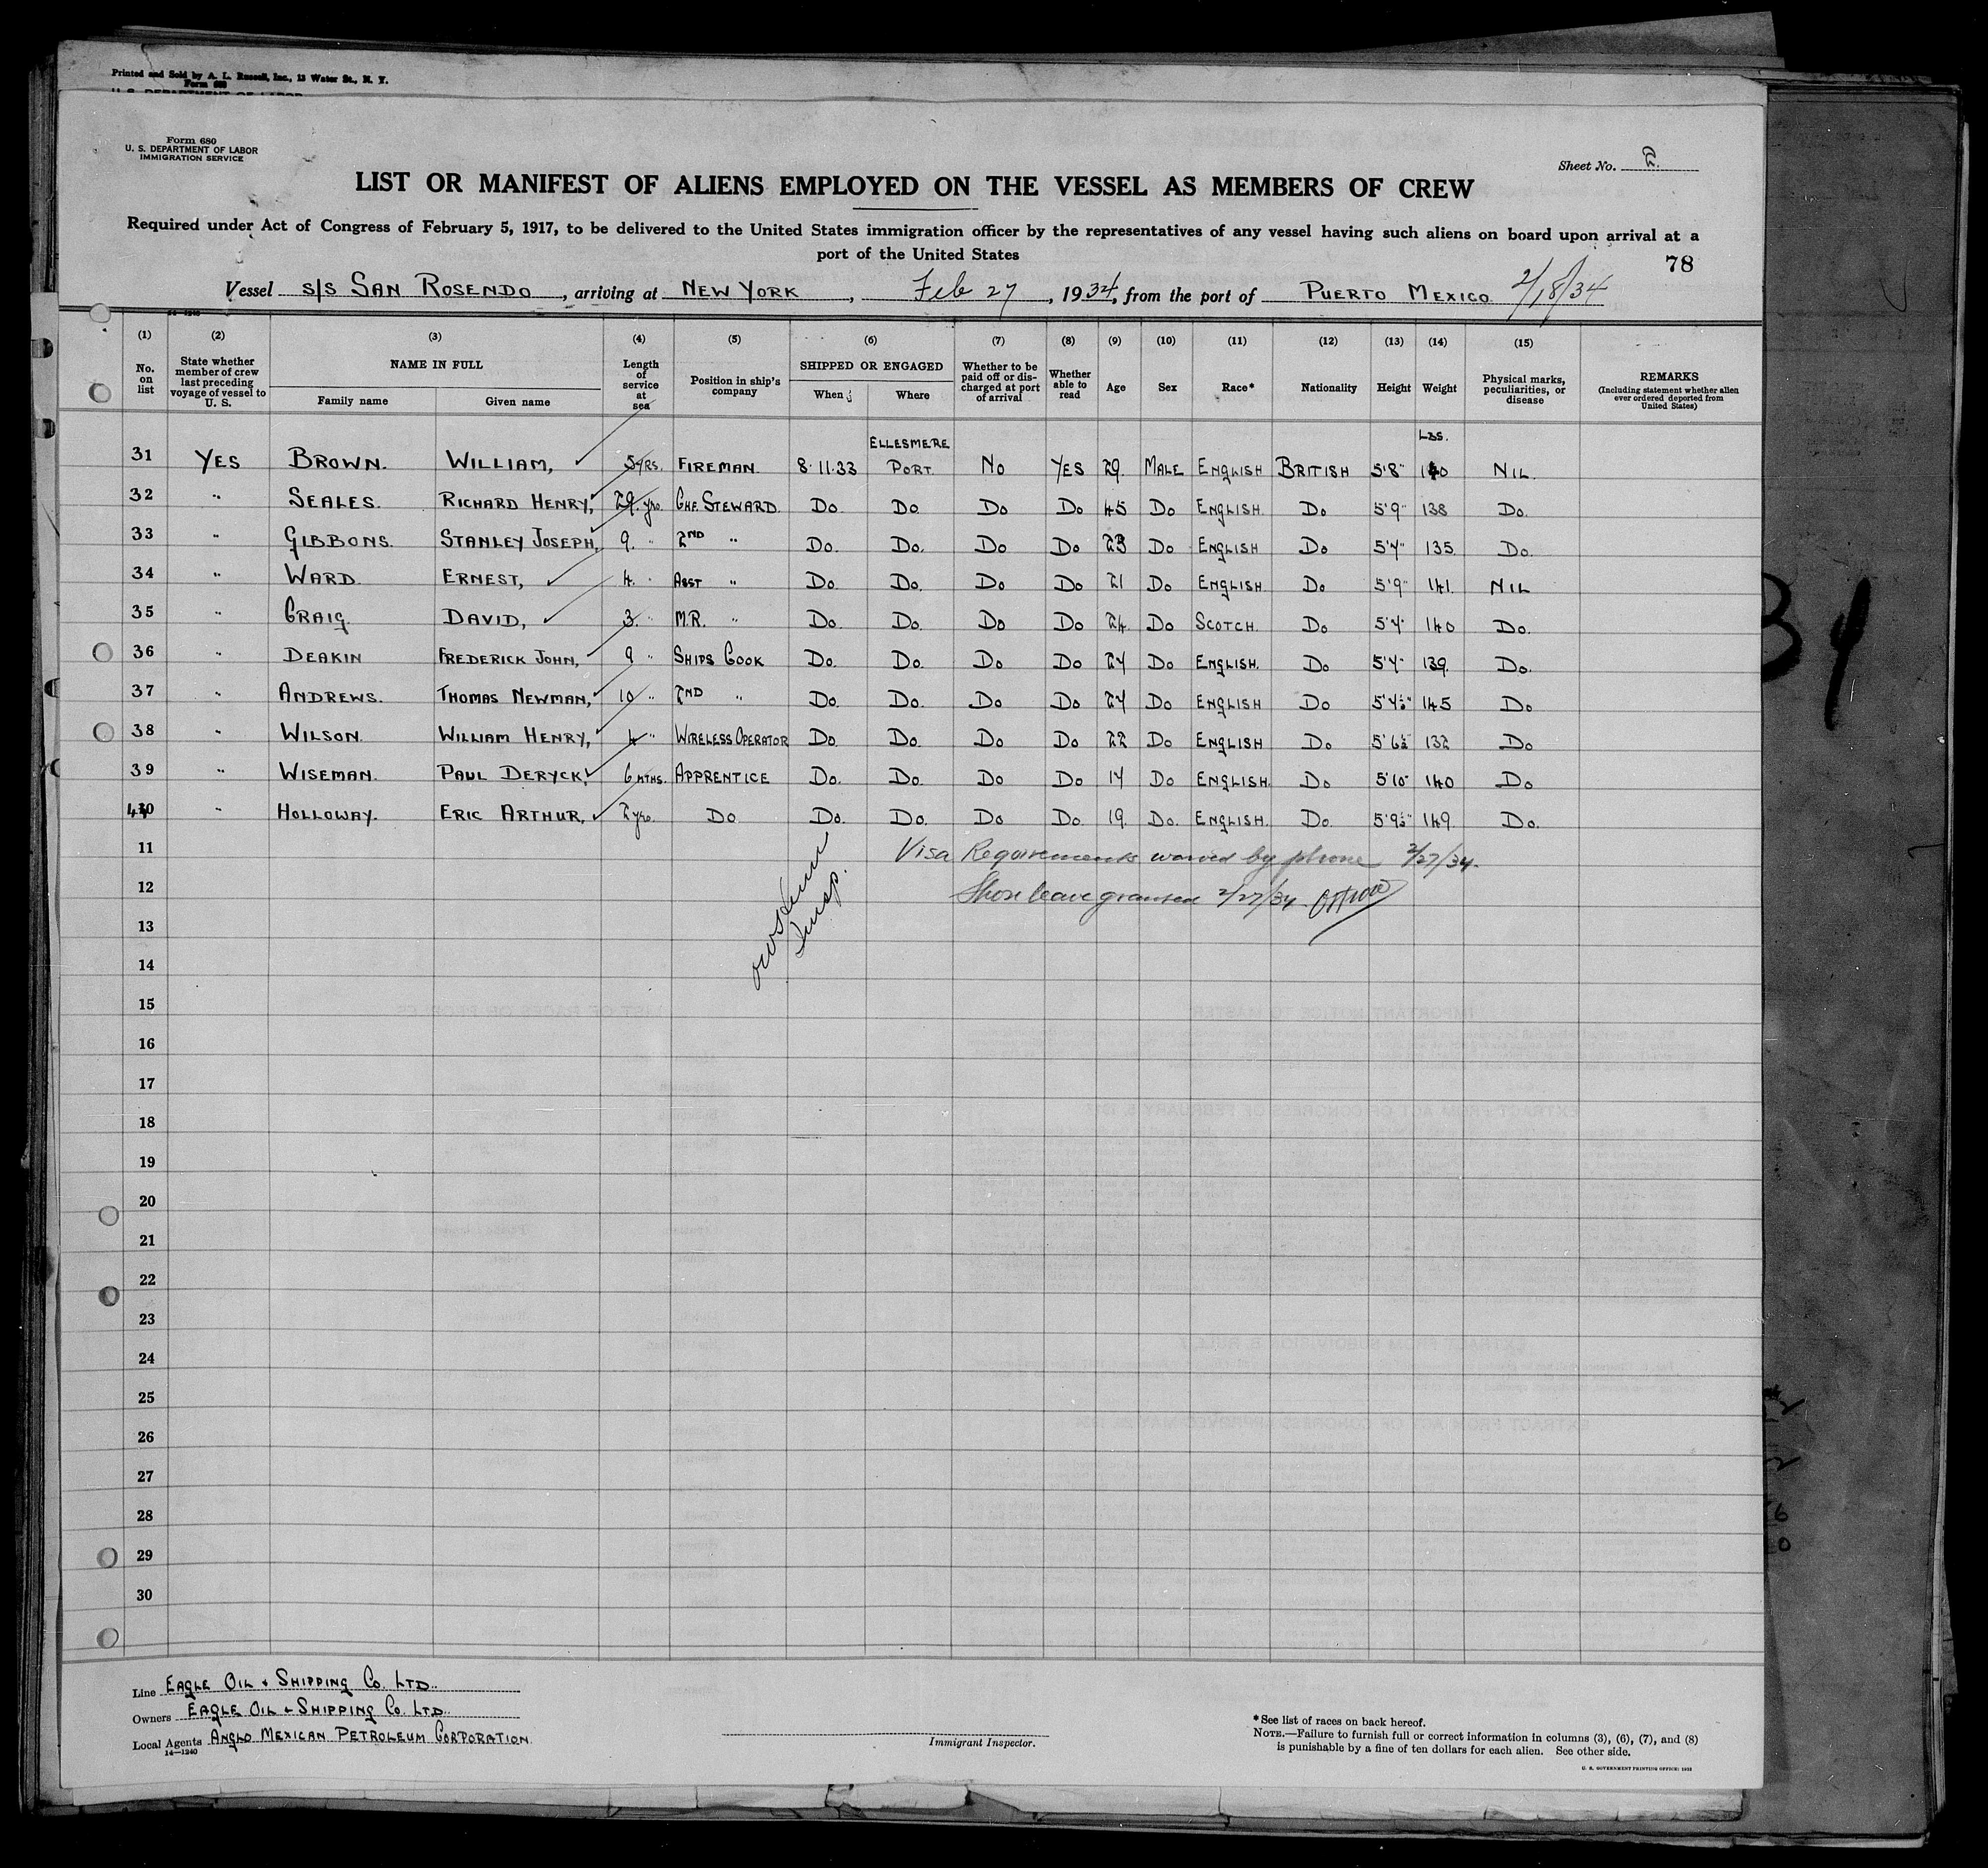 Printed and Sold by A. L. Russell, Inc., 13 Water St., N. Y.
Form 680
U. S. DEPARTMENT OF LABOR
Form 680
U. S. DEPARTMENT OF LABOR
IMMIGRATION SERVICE
Sheet No. 2.
LIST OR MANIFEST OF ALIENS EMPLOYED ON THE VESSEL AS MEMBERS OF CREW
Required under Act of Congress of February 5, 1917, to be delivered to the United States immigration officer by the representatives of any vessel having such aliens on board upon arrival at a
port of the United States
78
Vessel S/S SAN ROSENDO, arriving at NEW YORK, Feb 27, 1934, from the port of PUERTO MEXICO 2/18/34
(1) (2) (3) (4) (5) (6) (7) (8) (9) (10) (11) (12) (13) (14) (15)
No. on list
State whether member of crew last preceding voyage of vessel to U. S.
NAME IN FULL
Family name
Given name
Length of service at sea
Position in ship's company
SHIPPED OR ENGAGED
When
Where
Whether to be paid off or discharged at port of arrival
Whether able to read
Age
Sex
Race*
Nationality
Height
Weight
Physical marks, peculiarities, or disease
REMARKS
(Including statement whether alien ever ordered deported from United States)
ELLESMERE LBS.
31 YES BROWN. WILLIAM, 5 YRS. FIREMAN. 8.11.33 PORT. NO YES 29. MALE ENGLISH BRITISH 5'8" 140 NIL.
32 " SEALES. RICHARD HENRY, 29. yrs. CHF. STEWARD. DO. DO. DO DO 45 DO ENGLISH. DO 5'9" 138 DO.
33 " GIBBONS. STANLEY JOSEPH, 9. " 2ND " DO. DO. DO DO 23 DO ENGLISH DO 5'7" 135. DO.
34 " WARD. ERNEST, 4. " ASST " DO. DO. DO DO 21 DO ENGLISH. DO 5'9" 141. NIL
35 " CRAIG. DAVID, 3. " M.R. " DO. DO. DO DO 24. DO SCOTCH. DO 5'7" 140 DO.
36 " DEAKIN FREDERICK JOHN, 9 " SHIPS COOK DO. DO. DO DO 27 DO ENGLISH. DO 5'7" 139. DO.
37 " ANDREWS. THOMAS NEWMAN, 10 " 2ND " DO. DO. DO DO 27 DO ENGLISH DO 5'7½" 145 DO
38 " WILSON. WILLIAM HENRY, 4 " WIRELESS OPERATOR DO. DO. DO DO 22 DO ENGLISH DO 5'6½" 132 DO
39 " WISEMAN. PAUL DERYCK, 6 MTHS. APPRENTICE DO. DO. DO DO 17 DO ENGLISH. DO 5'10" 140 DO
40 " HOLLOWAY. ERIC ARTHUR, 2 yrs. DO DO. DO. DO DO. 19. DO. ENGLISH. DO. 5'9½" 149. DO.
11 Visa Requirements waived by phone 2/27/34.
12 Shore leave granted 2/27/34
Insp.
13
14
15
16
17
18
19
20
21
22
23
24
25
26
27
28
29
30
Line EAGLE OIL & SHIPPING CO. LTD.
Owners EAGLE OIL & SHIPPING CO. LTD.
Local Agents ANGLO MEXICAN PETROLEUM CORPORATION.
14—1240
Immigrant Inspector.
*See list of races on back hereof.
NOTE.—Failure to furnish full or correct information in columns (3), (6), (7), and (8)
is punishable by a fine of ten dollars for each alien. See other side.
34